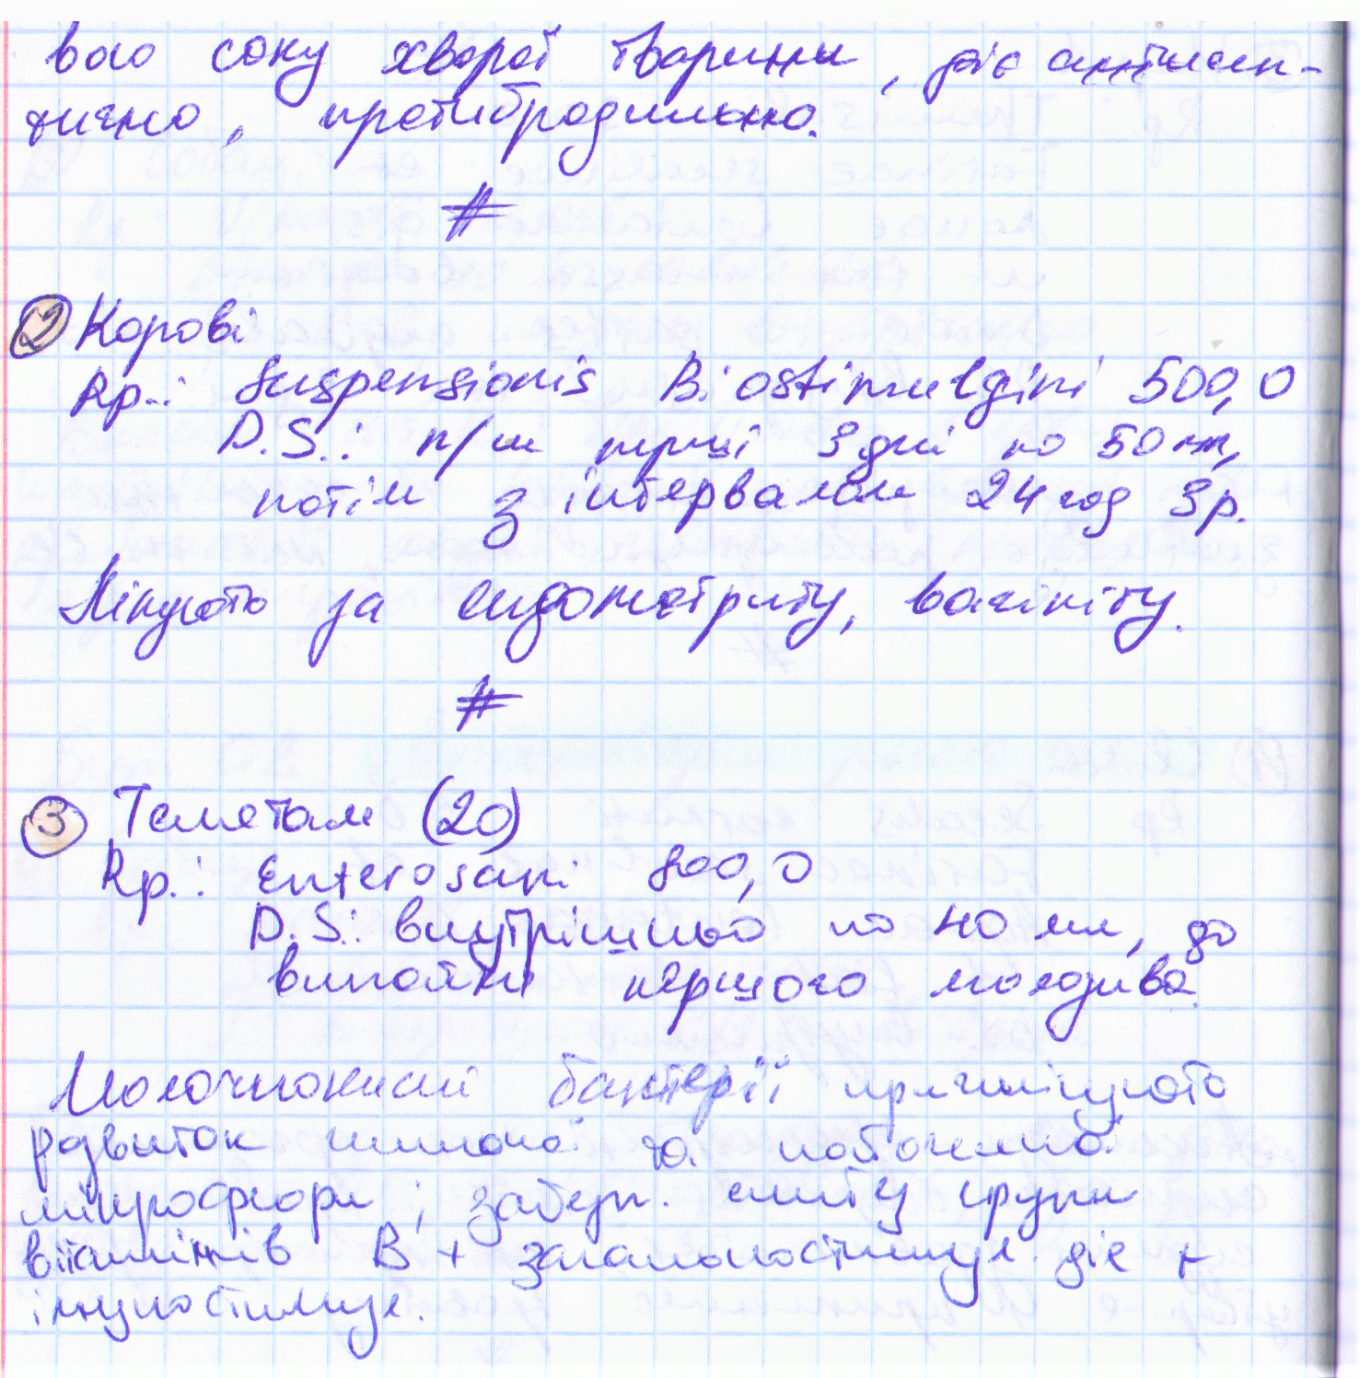 вого соку хворої тварини, діє антисеп-
тично, протибродильно.
#
2 Корові
Rp.: Suspensionis Biostimulgini 500,0
D.S.: п/ш перші 3 дні по 50 мл,
потім з інтервалом 24 год 3 р.
Лікують за ендометриту, вагініту.
#
3 Телятам (20)
Rp.: Enterosani 800,0
D.S.: внутрішньо по 40 мл, до
випойки першого молозива.
Молочнокислі бактерії пригнічують
розвиток гнилісної та побочної
мікрофлори; забезп. синтез групи
вітамінів B + загальностимул. діє +
імуностимул.